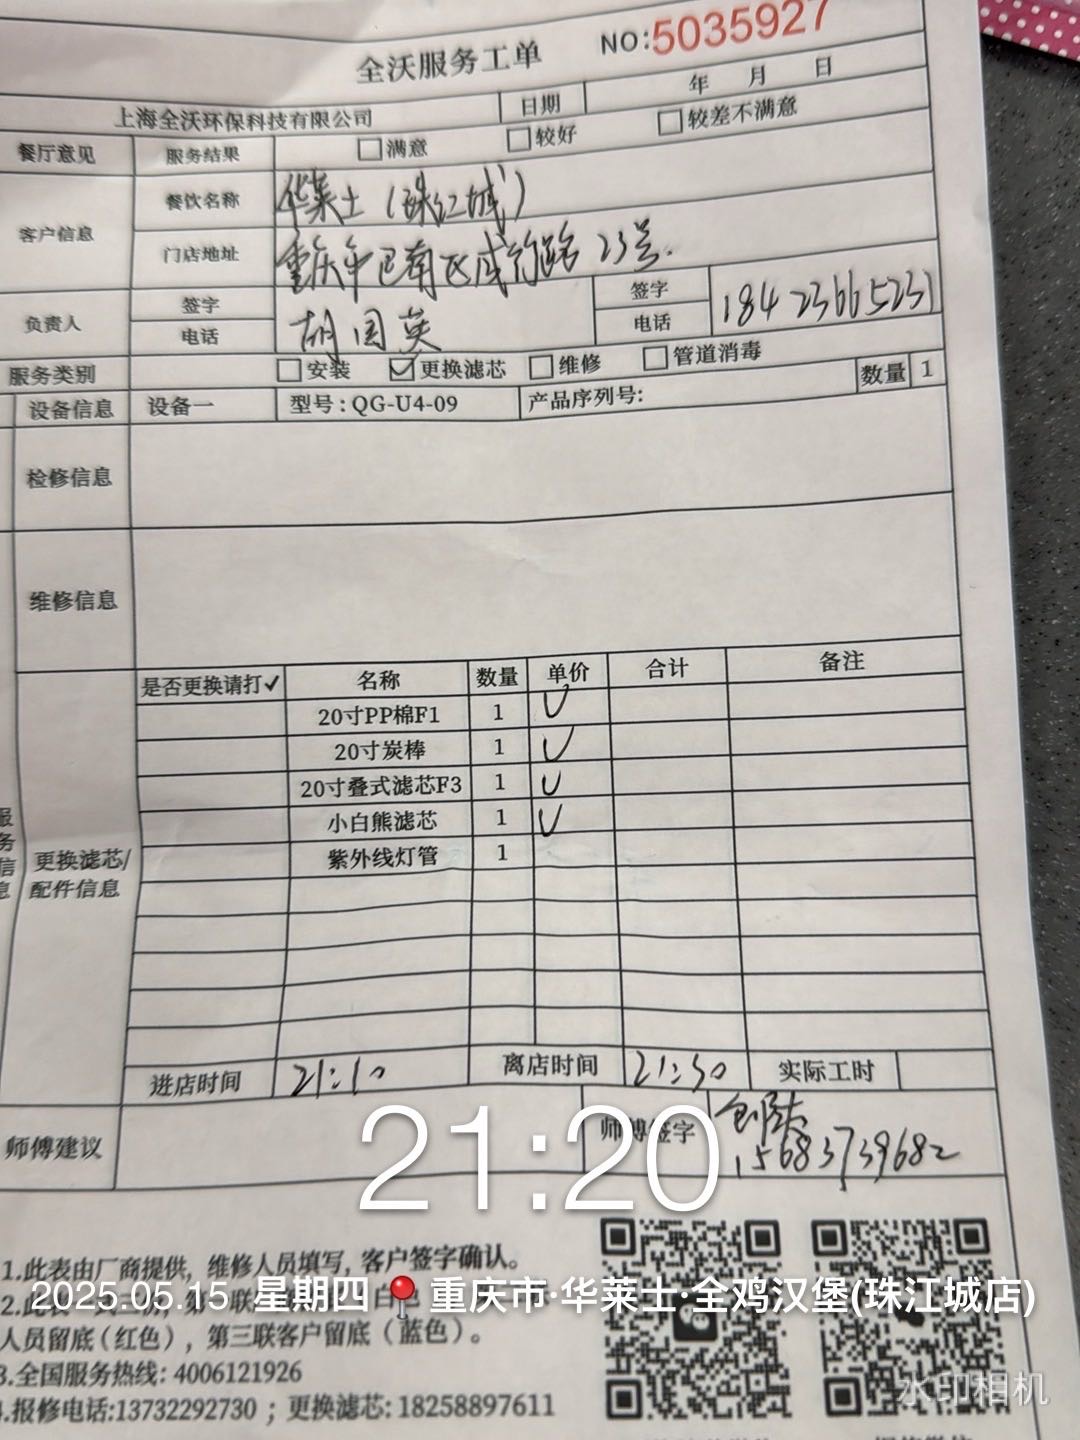 全沃服务工单 NO:5035927
上海全沃环保科技有限公司 日期 年 月 日
餐厅意见 服务结果 满意 较好 较差不满意
客户信息 餐饮名称 华莱士(珠江城)
门店地址 重庆市巴南区 23号
负责人 签字 胡国英 签字
电话 电话 18423665231
服务类别 安装 ✓更换滤芯 维修 管道消毒
设备信息 设备一 型号:QG-U4-09 产品序列号: 数量 1
检修信息
维修信息
服务信息
更换滤芯/
配件信息
是否更换请打✓ 名称 数量 单价 合计 备注
20寸PP棉F1 1 ✓
20寸炭棒 1 ✓
20寸叠式滤芯F3 1 ✓
小白熊滤芯 1 ✓
紫外线灯管 1
进店时间 21:10 离店时间 21:30 实际工时
师傅建议 师傅签字
15683739682
21:20
1.此表由厂商提供，维修人员填写，客户签字确认。
2025.05.15 星期四 重庆市·华莱士·全鸡汉堡(珠江城店)
人员留底(红色)，第三联客户留底(蓝色)。
3.全国服务热线:4006121926
4.报修电话:13732292730；更换滤芯:18258897611
水印相机